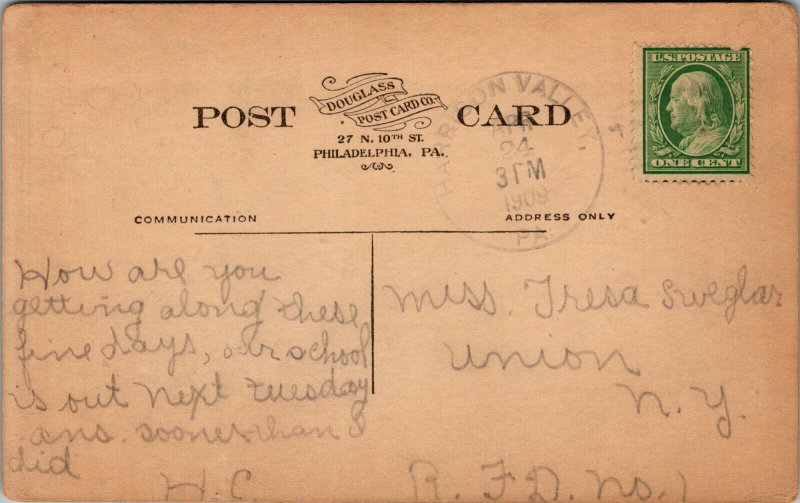 POST CARD
DOUGLASS
POST CARD CO.
27 N. 10TH ST.
PHILADELPHIA, PA.
HARRISON VALLEY,
APR
24
3 PM
1909
PA.
U.S. POSTAGE
ONE CENT
COMMUNICATION
ADDRESS ONLY
How are you
getting along these
fine days, our school
is out next Tuesday
ans. sooner than I
did
H. C.
Miss. Tresa Sweglar
Union
N. Y.
R. F. D. No. 1